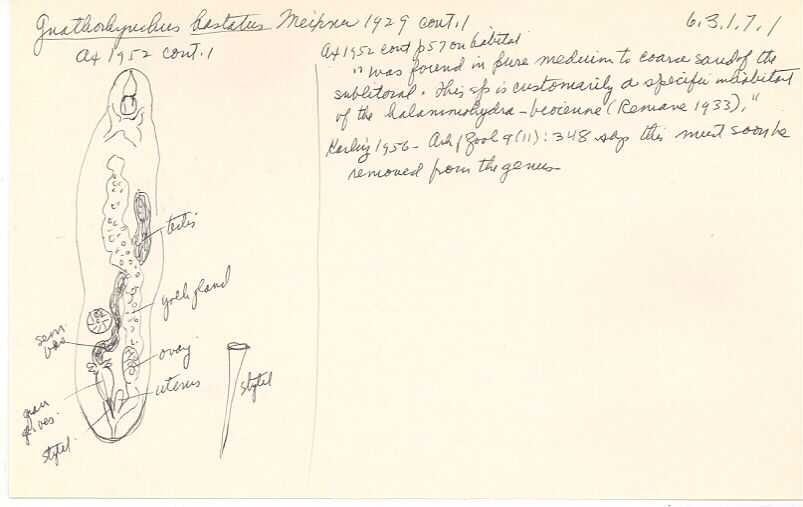 Gnathorhynchus hastatus Meixner 1929 cont.1
6.3.1.7.1
Ax 1952 cont.1
testis
yolk gland
sem.
ves.
ovary
uterus
gran
ves.
stylet
stylet
Ax 1952 cont p57 on habitat
"was found in pure medium to coarse sand of the
sublitoral. This sp is customarily a specific inhabitant
of the halammohydra-
(Remane 1933)."
Karling 1956- Ark f Zool 9(11):348 says this must soon be
removed from the genus